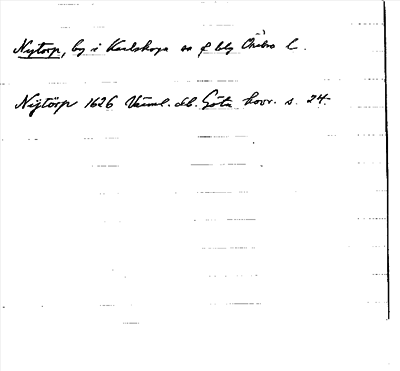 Nytorp, by i Karlskoga sn o blg Örebro l.
Nÿtörp 1626 Värml. db. Göta hovr. s. 24.